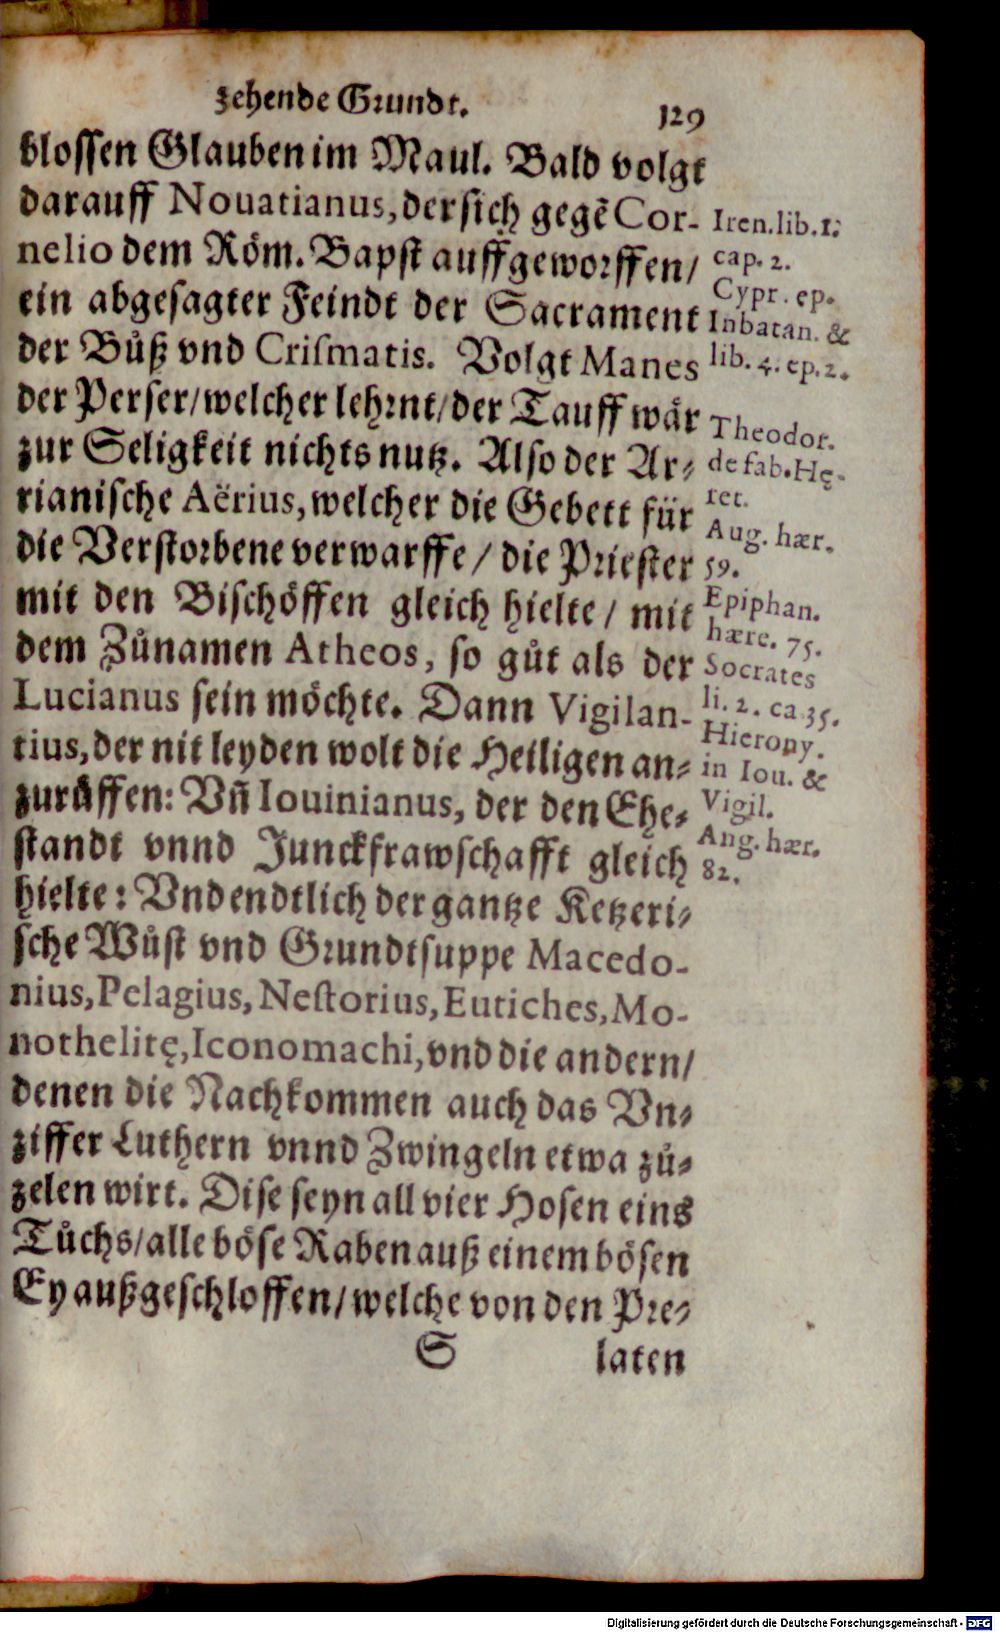 zehende Grundt.
129
blossen Glauben im Maul. Bald volgt
darauff Nouatianus, der sich gegẽ Cor-
nelio dem Röm. Bapst auffgeworffen/
ein abgesagter Feindt der Sacrament
der Bůß vnd Crismatis. Volgt Manes
der Perser/welcher lehrnt/der Tauff wär
zur Seligkeit nichts nutz. Also der Ar-
rianische Aërius, welcher die Gebett für
die Verstorbene verwarffe/ die Priester
mit den Bischöffen gleich hielte/ mit
dem Zůnamen Atheos, so gůt als der
Lucianus sein möchte. Dann Vigilan-
tius, der nit leyden wolt die Heiligen an-
zurůffen: Vñ Iouinianus, der den Ehe-
standt vnnd Junckfrawschafft gleich
hielte: Vnd endtlich der gantze Ketzeri-
sche Wůst vnd Grundtsuppe Macedo-
nius, Pelagius, Nestorius, Eutiches, Mo-
nothelitę, Iconomachi, vnd die andern/
denen die Nachkommen auch das Vn-
ziffer Luthern vnnd Zwingeln etwa zů-
zelen wirt. Dise seyn all vier Hosen eins
Tůchs/alle böse Raben auß einem bösen
Ey außgeschloffen/welche von den Pre-
S
laten
Iren.lib.1.
cap. 2.
Cypr. ep.
Inbatan. &
lib. 4. ep. 2.
Theodor.
de fab. Hę-
ret.
Aug. hær.
59.
Epiphan.
hære. 75.
Socrates
li. 2. ca 35.
Hierony.
in Iou. &
Vigil.
Aug. hær.
82.
Digitalisierung gefördert durch die Deutsche Forschungsgemeinschaft - DFG